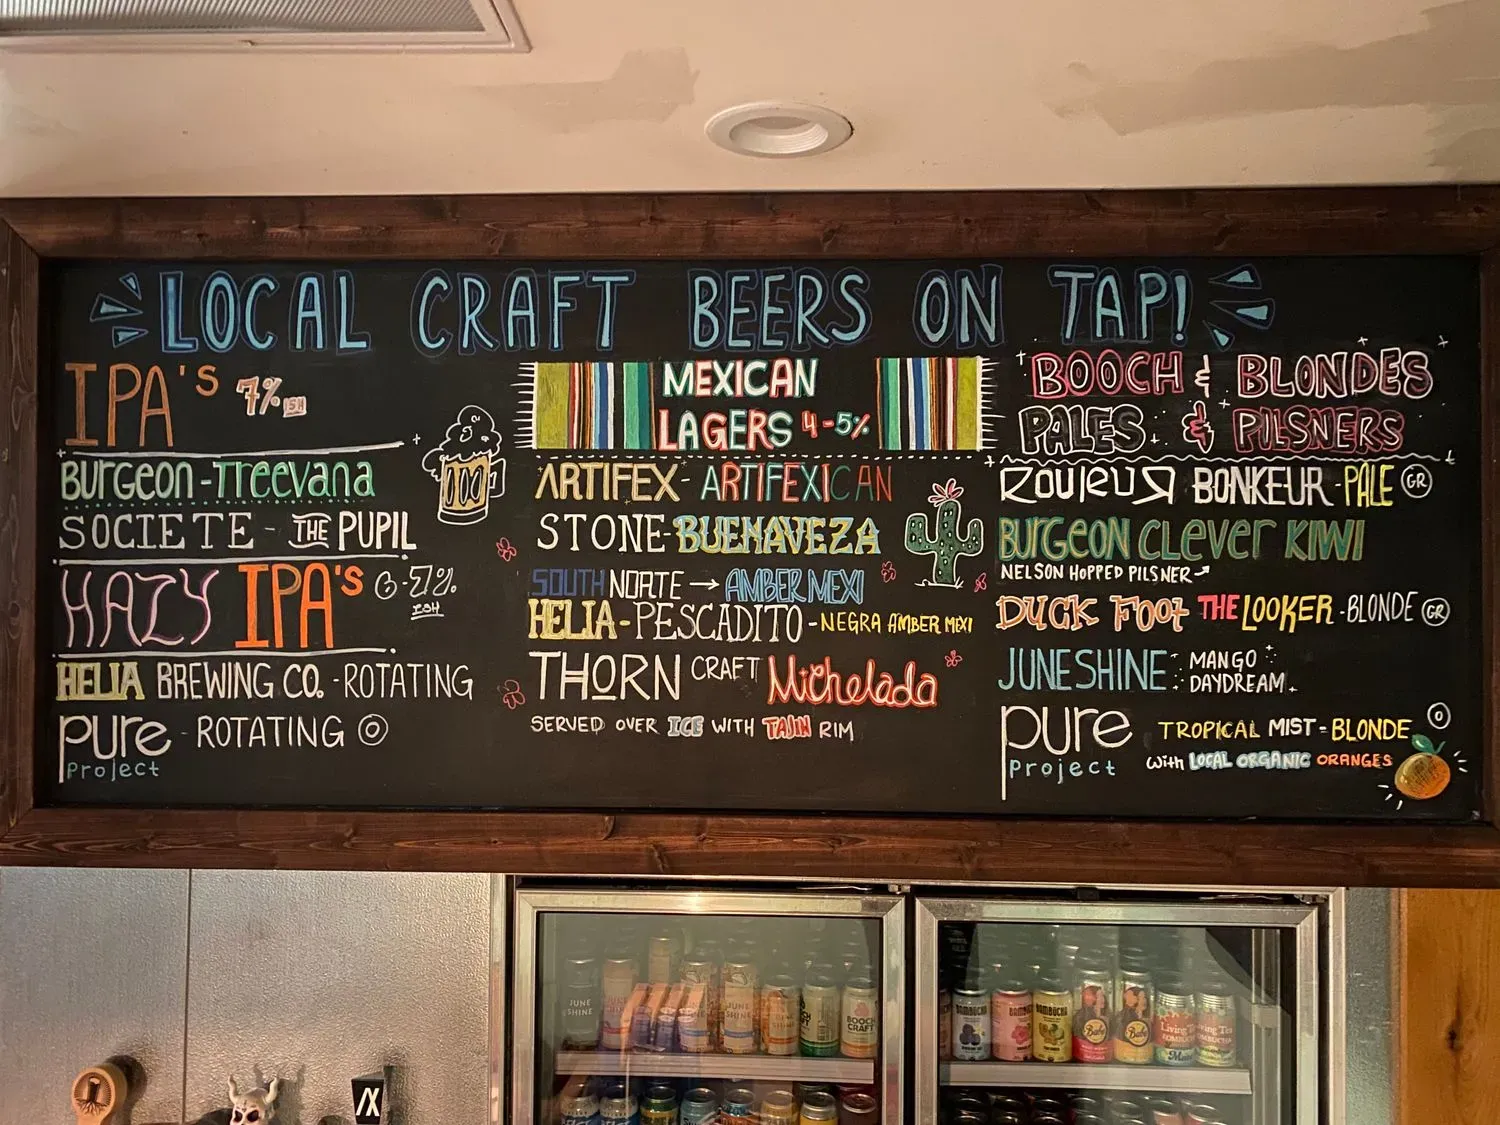 LOCAL CRAFT BEERS ON TAP!
IPA'S 7% ISH
BURGEON - TREEVANA
SOCIETE - THE PUPIL
HAZY IPA'S 6-7% ISH
HELIA BREWING CO. - ROTATING
PURE Project - ROTATING O
MEXICAN
LAGERS 4-5%
ARTIFEX - ARTIFEXICAN
STONE - BUENAVEZA
SOUTH NORTE → AMBER MEXI
HELIA - PESCADITO - NEGRA AMBER MEXI
THORN CRAFT Michelada
SERVED OVER ICE WITH TAJIN RIM
BOOCH & BLONDES
PALES & PILSNERS
ROULEUR BONKEUR - PALE GR
BURGEON CLEVER KIWI
NELSON HOPPED PILSNER
DUCK FOOT THE LOOKER - BLONDE GR
JUNESHINE MANGO
DAYDREAM
PURE Project TROPICAL MIST - BLONDE O
with LOCAL ORGANIC ORANGES
JUNE SHINE
JUNE SHINE
BOOCH CRAFT
BAMBUCHA
BAMBUCHA
Babe
Babe
Living Tea
KOMBUCHA